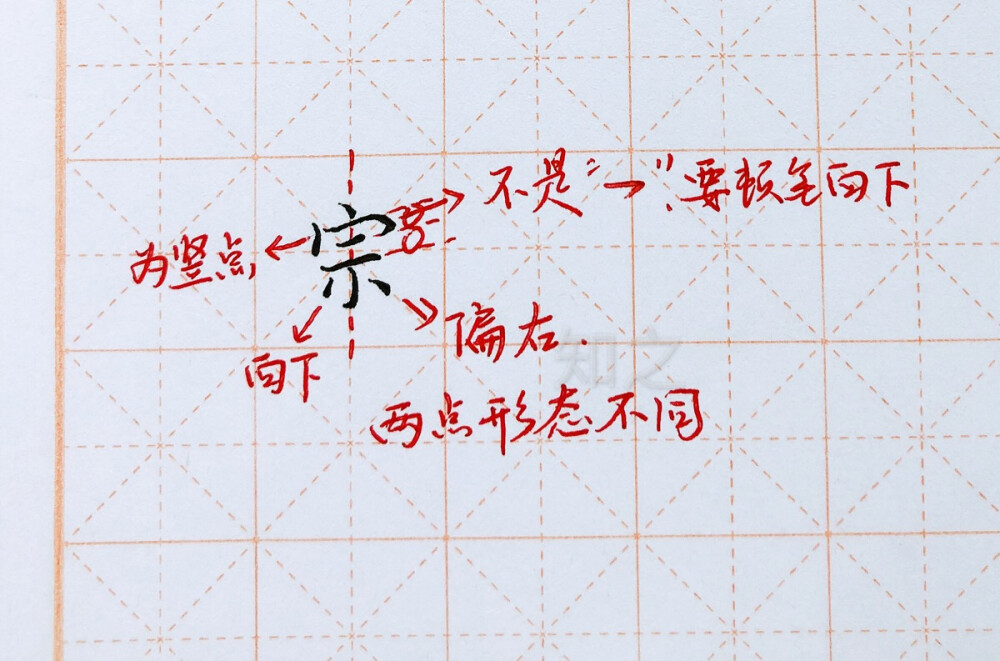 不是“→”,要顿笔向下
宗
为竖点
偏右.
向下
两点形态不同
知之